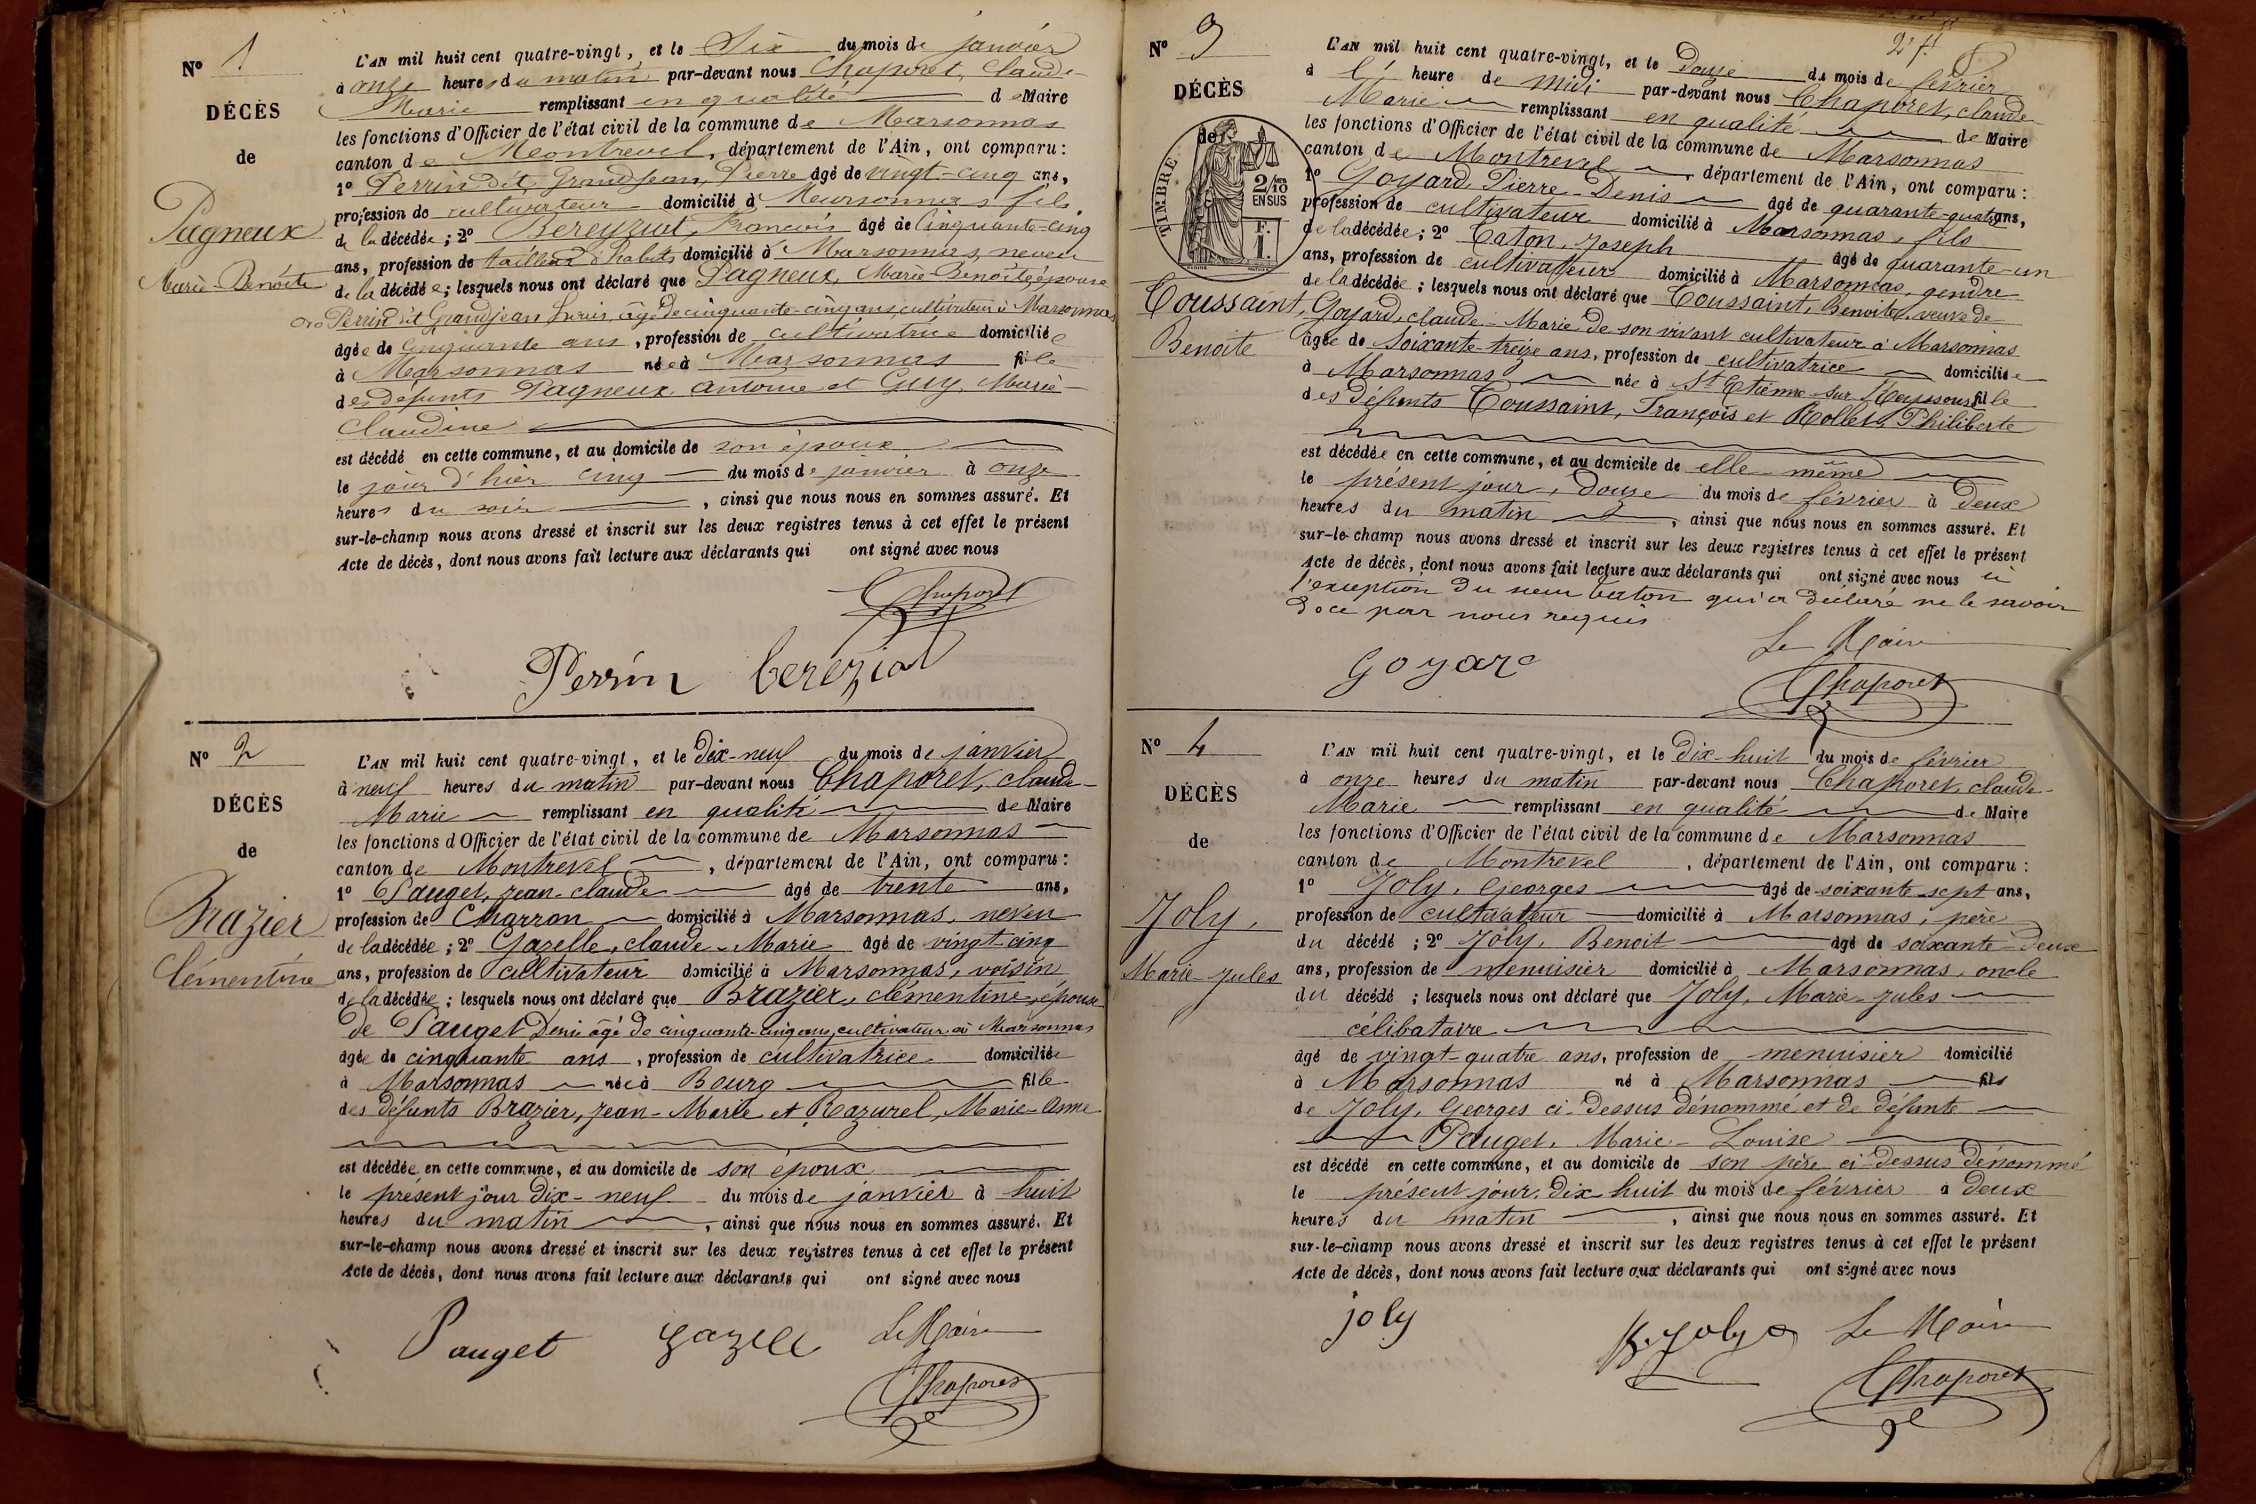 N° 1
DÉCÈS
de
Pagneux
Marie-Benoite
L'AN mil huit cent quatre-vingt, et le Six du mois de janvier
à onze heures du matin par-devant nous Chaporet, Claude-
Marie remplissant en qualité de Maire
les fonctions d'Officier de l'état civil de la commune de Marsonnas
canton de Montrevel, département de l'Ain, ont comparu :
1° Perrin dit Grandjean, Pierre âgé de vingt-cinq ans,
profession de cultivateur domicilié à Marsonnas fils
de la décédée ; 2° Bereyziat, François âgé de Cinquante-cinq
ans, profession de tailleur d'habits domicilié à Marsonnas, neveu
de la décédée ; lesquels nous ont déclaré que Pagneux, Marie-Benoite, épouse
Perrin dit Grandjean Louis, âgé de cinquante-cinq ans, cultivateur à Marsonnas
âgée de cinquante ans, profession de cultivatrice domiciliée
à Marsonnas née à Marsonnas fille
des défunts Pagneux Antoine et Guy, Marie-
Claudine
est décédé en cette commune, et au domicile de son époux
le jour d'hier cinq du mois de janvier à onze
heures du soir, ainsi que nous nous en sommes assuré. Et
sur-le-champ nous avons dressé et inscrit sur les deux registres tenus à cet effet le présent
Acte de décès, dont nous avons fait lecture aux déclarants qui ont signé avec nous
Chaporet
Perrin bereziat
N° 2
DÉCÈS
de
Brazier
Clémentine
L'AN mil huit cent quatre-vingt, et le Dix-neuf du mois de janvier
à neuf heures du matin par-devant nous Chaporet, claude-
Marie remplissant en qualité de Maire
les fonctions d'Officier de l'état civil de la commune de Marsonnas
canton de Montrevel, département de l'Ain, ont comparu :
1° Pauget, jean-claude âgé de trente ans,
profession de Charron domicilié à Marsonnas, neveu
de la décédée ; 2° Gazelle, claude-Marie âgé de vingt-cinq
ans, profession de cultivateur domicilié à Marsonnas, voisin
de la décédée ; lesquels nous ont déclaré que Brazier, clémentine, épouse
de Pauget Denis âgé de cinquante-cinq ans, cultivateur à Marsonnas
âgée de cinquante ans, profession de cultivatrice domiciliée
à Marsonnas née à Bourg fille
des défunts Brazier, jean-Marie et Razurel, Marie-Anne
est décédée en cette commune, et au domicile de son époux
le présent jour Dix-neuf du mois de janvier à huit
heures du matin, ainsi que nous nous en sommes assuré. Et
sur-le-champ nous avons dressé et inscrit sur les deux registres tenus à cet effet le présent
Acte de décès, dont nous avons fait lecture aux déclarants qui ont signé avec nous
Pauget gazelle Le Maire
Chaporet
N° 3
DÉCÈS
de
TIMBRE
2/10 EN SUS
F. 1.
Toussaint,
Benoite
L'AN mil huit cent quatre-vingt, et le Douze du mois de février
à l' heure de midi par-devant nous Chaporet, claude
Marie remplissant en qualité de Maire
les fonctions d'Officier de l'état civil de la commune de Marsonnas
canton de Montrevel, département de l'Ain, ont comparu :
1° Goyard Pierre-Denis âgé de quarante-quatre ans,
profession de cultivateur domicilié à Marsonnas, fils
de la décédée ; 2° Caton, Joseph âgé de quarante-un
ans, profession de cultivateur domicilié à Marsonnas, gendre
de la décédée ; lesquels nous ont déclaré que Toussaint, Benoite, veuve de
Goyard, claude-Marie de son vivant cultivateur à Marsonnas
âgée de Soixante-treize ans, profession de cultivatrice domiciliée
à Marsonnas née à St Etienne-sur-Reyssouze fille
des défunts Toussaint, François et Rollet, Philiberte
est décédée en cette commune, et au domicile de elle-même
le présent jour, Douze du mois de février à Deux
heures du matin, ainsi que nous nous en sommes assuré. Et
sur-le-champ nous avons dressé et inscrit sur les deux registres tenus à cet effet le présent
Acte de décès, dont nous avons fait lecture aux déclarants qui ont signé avec nous à
l'exception du sieur Caton qui a déclaré ne le savoir
de ce par nous requis
Le Maire
Goyard
Chaporet
N° 4
DÉCÈS
de
Joly,
Marie-Jules
L'AN mil huit cent quatre-vingt, et le Dix-huit du mois de février
à onze heures du matin par-devant nous Chaporet, claude-
Marie remplissant en qualité de Maire
les fonctions d'Officier de l'état civil de la commune de Marsonnas
canton de Montrevel, département de l'Ain, ont comparu :
1° Joly, Georges âgé de soixante-sept ans,
profession de cultivateur domicilié à Marsonnas, père
du décédé ; 2° Joly, Benoit âgé de soixante-Deux
ans, profession de menuisier domicilié à Marsonnas, oncle
du décédé ; lesquels nous ont déclaré que Joly, Marie-Jules
célibataire
âgé de vingt-quatre ans, profession de menuisier domicilié
à Marsonnas né à Marsonnas fils
de Joly, Georges ci-Dessus dénommé et de défunte
Pauget, Marie-Louise
est décédé en cette commune, et au domicile de son père ci-Dessus dénommé
le présent jour, Dix huit du mois de février à Deux
heures du matin, ainsi que nous nous en sommes assuré. Et
sur-le-champ nous avons dressé et inscrit sur les deux registres tenus à cet effet le présent
Acte de décès, dont nous avons fait lecture aux déclarants qui ont signé avec nous
joly B. Joly Le Maire
Chaporet